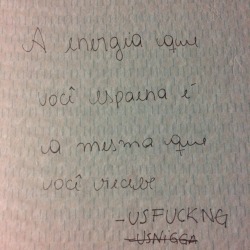 A energia que
você espaena é
a mesma que
você recebe
-USFUCKNG
-USNIGGA